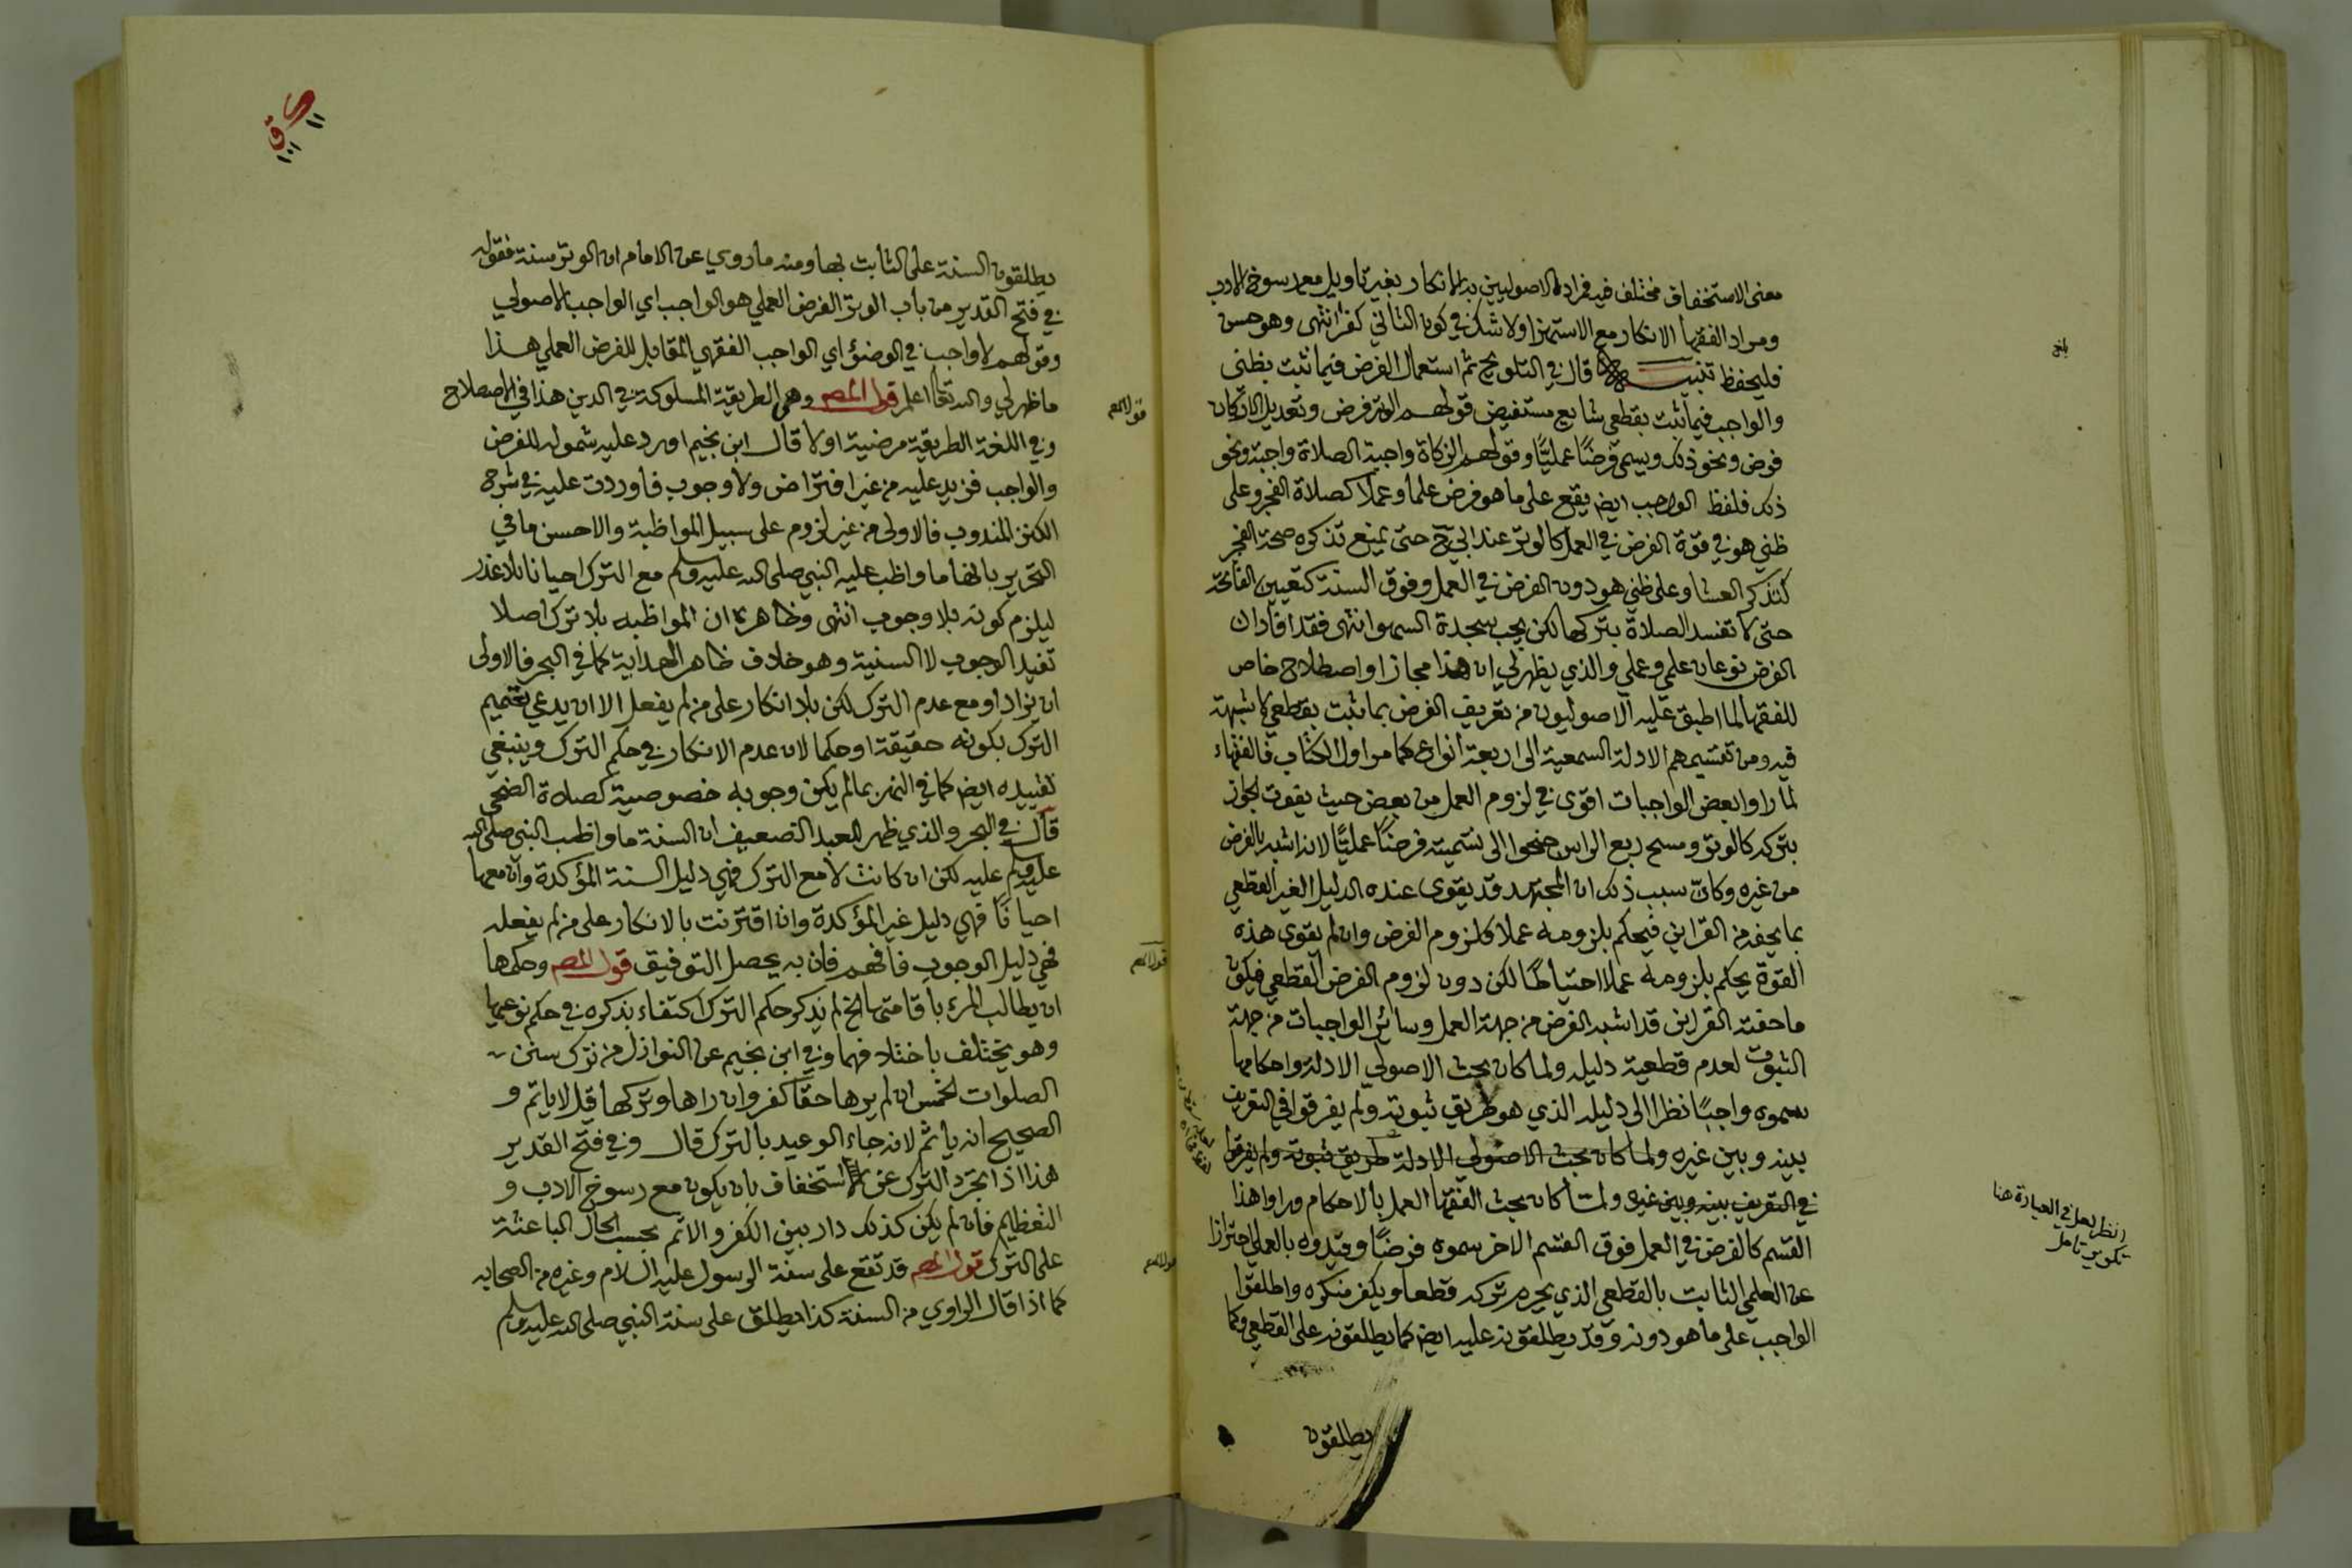 معنى الاستخفاف مختلف فيه فمراد الاصوليين به الانكار بغير تاويل مع رسوخ الادب
ومراد الفقها الانكار مع الاستهزا ولا شك في كون الثاني كفرا انتهى وهو حسن
فليحفظ تنبيه قال في التلويح ثم استعمال الفرض فيما ثبت بظني
والواجب فيما ثبت بقطعي شايع مستفيض قولهم الوتر فرض وتعديل الاركان
فرض ونحو ذلك ويسمى فرضًا عمليًّا وقولهم الزكاة واجبة الصلاة واجبة ونحو
ذلك فلفظ الواجب ايض يقع على ما هو فرض علما وعملا كصلاة الفجر وعلى
ظني هو في قوة الفرض في العمل كالوتر عند ابي ح حتى يمنع تذكره صحة الفجر
كتذكر العشا وعلى ظني هو دون الفرض في العمل وفوق السنة كتعيين الفاتحة
حتى لا تفسد الصلاة بتركها لكن يجب سجدة السهو انتهى فقد افاد ان
الفرض نوعان علمي وعملي والذي يظهر لي ان هذا مجاز او اصطلاح خاص
للفقها لما اطبق عليه الاصوليون من تعريف الفرض بما ثبت بقطعي لا شبهة
فيه ومن تقسيمهم الادلة السمعية الى اربعة انواع كما مر اول الكتاب فالفقهاء
لما راوا بعض الواجبات اقوى في لزوم العمل من بعض حيث يفوت الجواز
بتركه كالوتر ومسح ربع الراس جنحوا الى تسميته فرضًا عمليًّا لانه اشبه بالفرض
من غيره وكانّ سبب ذلك ان المجتهد قد يقوى عنده الدليل الغير القطعي
بما يحفه من القراين فيحكم بلزومه عملا كلزوم الفرض وان لم يقوى هذه
القوة يحكم بلزومه عملا احتياطًا لكن دون لزوم الفرض القطعي فيكون
ما حفته القراين قد اشبه الفرض من جهة العمل وسائر الواجبات من جهة
الثبوت لعدم قطعية دليله ولما كان بحث الاصولي الادلة واحكامها
سموه واجبًا نظرا الى دليله الذي هو طريق ثبوته ولم يفرقوا في التعريف
بينه وبين غيره ولما كان بحث الاصولي الادلة طريق ثبوته ولم يفرقوا
في التعريف بينه وبين غيره ولما كان بحث الفقها العمل بالاحكام وراوا هذا
القسم كالفرض في العمل فوق القسم الاخر سموه فرضًا وقيدوه بالعملي احترازا
عن العلمي الثابت بالقطعي الذي يحرم تركه قطعا ويكفر منكره واطلقوا
الواجب على ما هو دونه وقد يطلقونه عليه ايض كما يطلقونه على القطعي وكما
يطلقون
انظر لعل في العبارة هنا
تكرير تامل
١١
١٠١
يطلقون السنة على الثابت بها ومنه ما روي عن الامام ان الوتر سنة فقوله
في فتح القدير من باب الوتر الفرض العملي هو الواجب اي الواجب الاصولي
وقولهم لا واجب في الوضؤ اي الواجب الفقهي المقابل للفرض العملي هذا
ما ظهر لي والله تعالى اعلم قول المص وهي الطريقة المسلوكة في الدين هذا في الاصطلاح
وفي اللغة الطريقة مرضية او لا قال ابن نجيم اورد عليه شموله للفرض
والواجب فزيد عليه من غير افتراض ولا وجوب فاوردت عليه في شرح
الكنز المندوب فالاولى من غير لزوم على سبيل المواظبة والاحسن ما في
التحرير بانها ما واظب عليه النبي صلى الله عليه وسلم مع الترك احيانا بلا عذر
ليلزم كونه بلا وجوب انتهى وظاهره ان المواظبه بلا ترك اصلا
تفيد الوجوب لا السنية وهو خلاف ظاهر الهداية كما في البحر فالاولى
ان يزاد او مع عدم الترك لكن بلا انكار على من لم يفعل الا ان يدعي تعميم
الترك بكونه حقيقة او حكما لان عدم الانكار في حكم الترك وينبغي
تقييده ايض كما في النهر بما لم يكن وجوبه خصوصية كصلاة الضحى
قال في البحر والذي ظهر للعبد الضعيف ان السنة ما واظب النبي صلى الله
عليه وسلم عليه لكن ان كانت لا مع الترك فهي دليل السنة المؤكدة وان معها
احيانًا فهي دليل غير المؤكدة وان اقترنت بالانكار على من لم يفعله
فهي دليل الوجوب فافهم فان به يحصل التوفيق قول المص وحكمها
ان يطالب المرء باقامتها الخ لم يذكر حكم الترك اكتفاء بذكره في حكم نوعيها
وهو يختلف باختلافهما وفي ابن نجيم عن النوازل من ترك سنن
الصلوات الخمس ان لم يرها حقًا كفر وان راها وتركها قيل لا ياثم و
الصحيح انه ياثم لانه جاء الوعيد بالترك قال وفي فتح القدير
هذا اذا تجرد الترك عن استخفاف بان يكون مع رسوخ الادب و
التعظيم فان لم يكن كذلك دار بين الكفر والاثم بحسب الحال الباعثة
على الترك قول المص قد تقع على سنة الرسول عليه السلام وغيره من الصحابه
كما اذا قال الراوي من السنة كذا يطلق على سنة النبي صلى الله عليه وسلم
قول المص
قول المص
قول المص